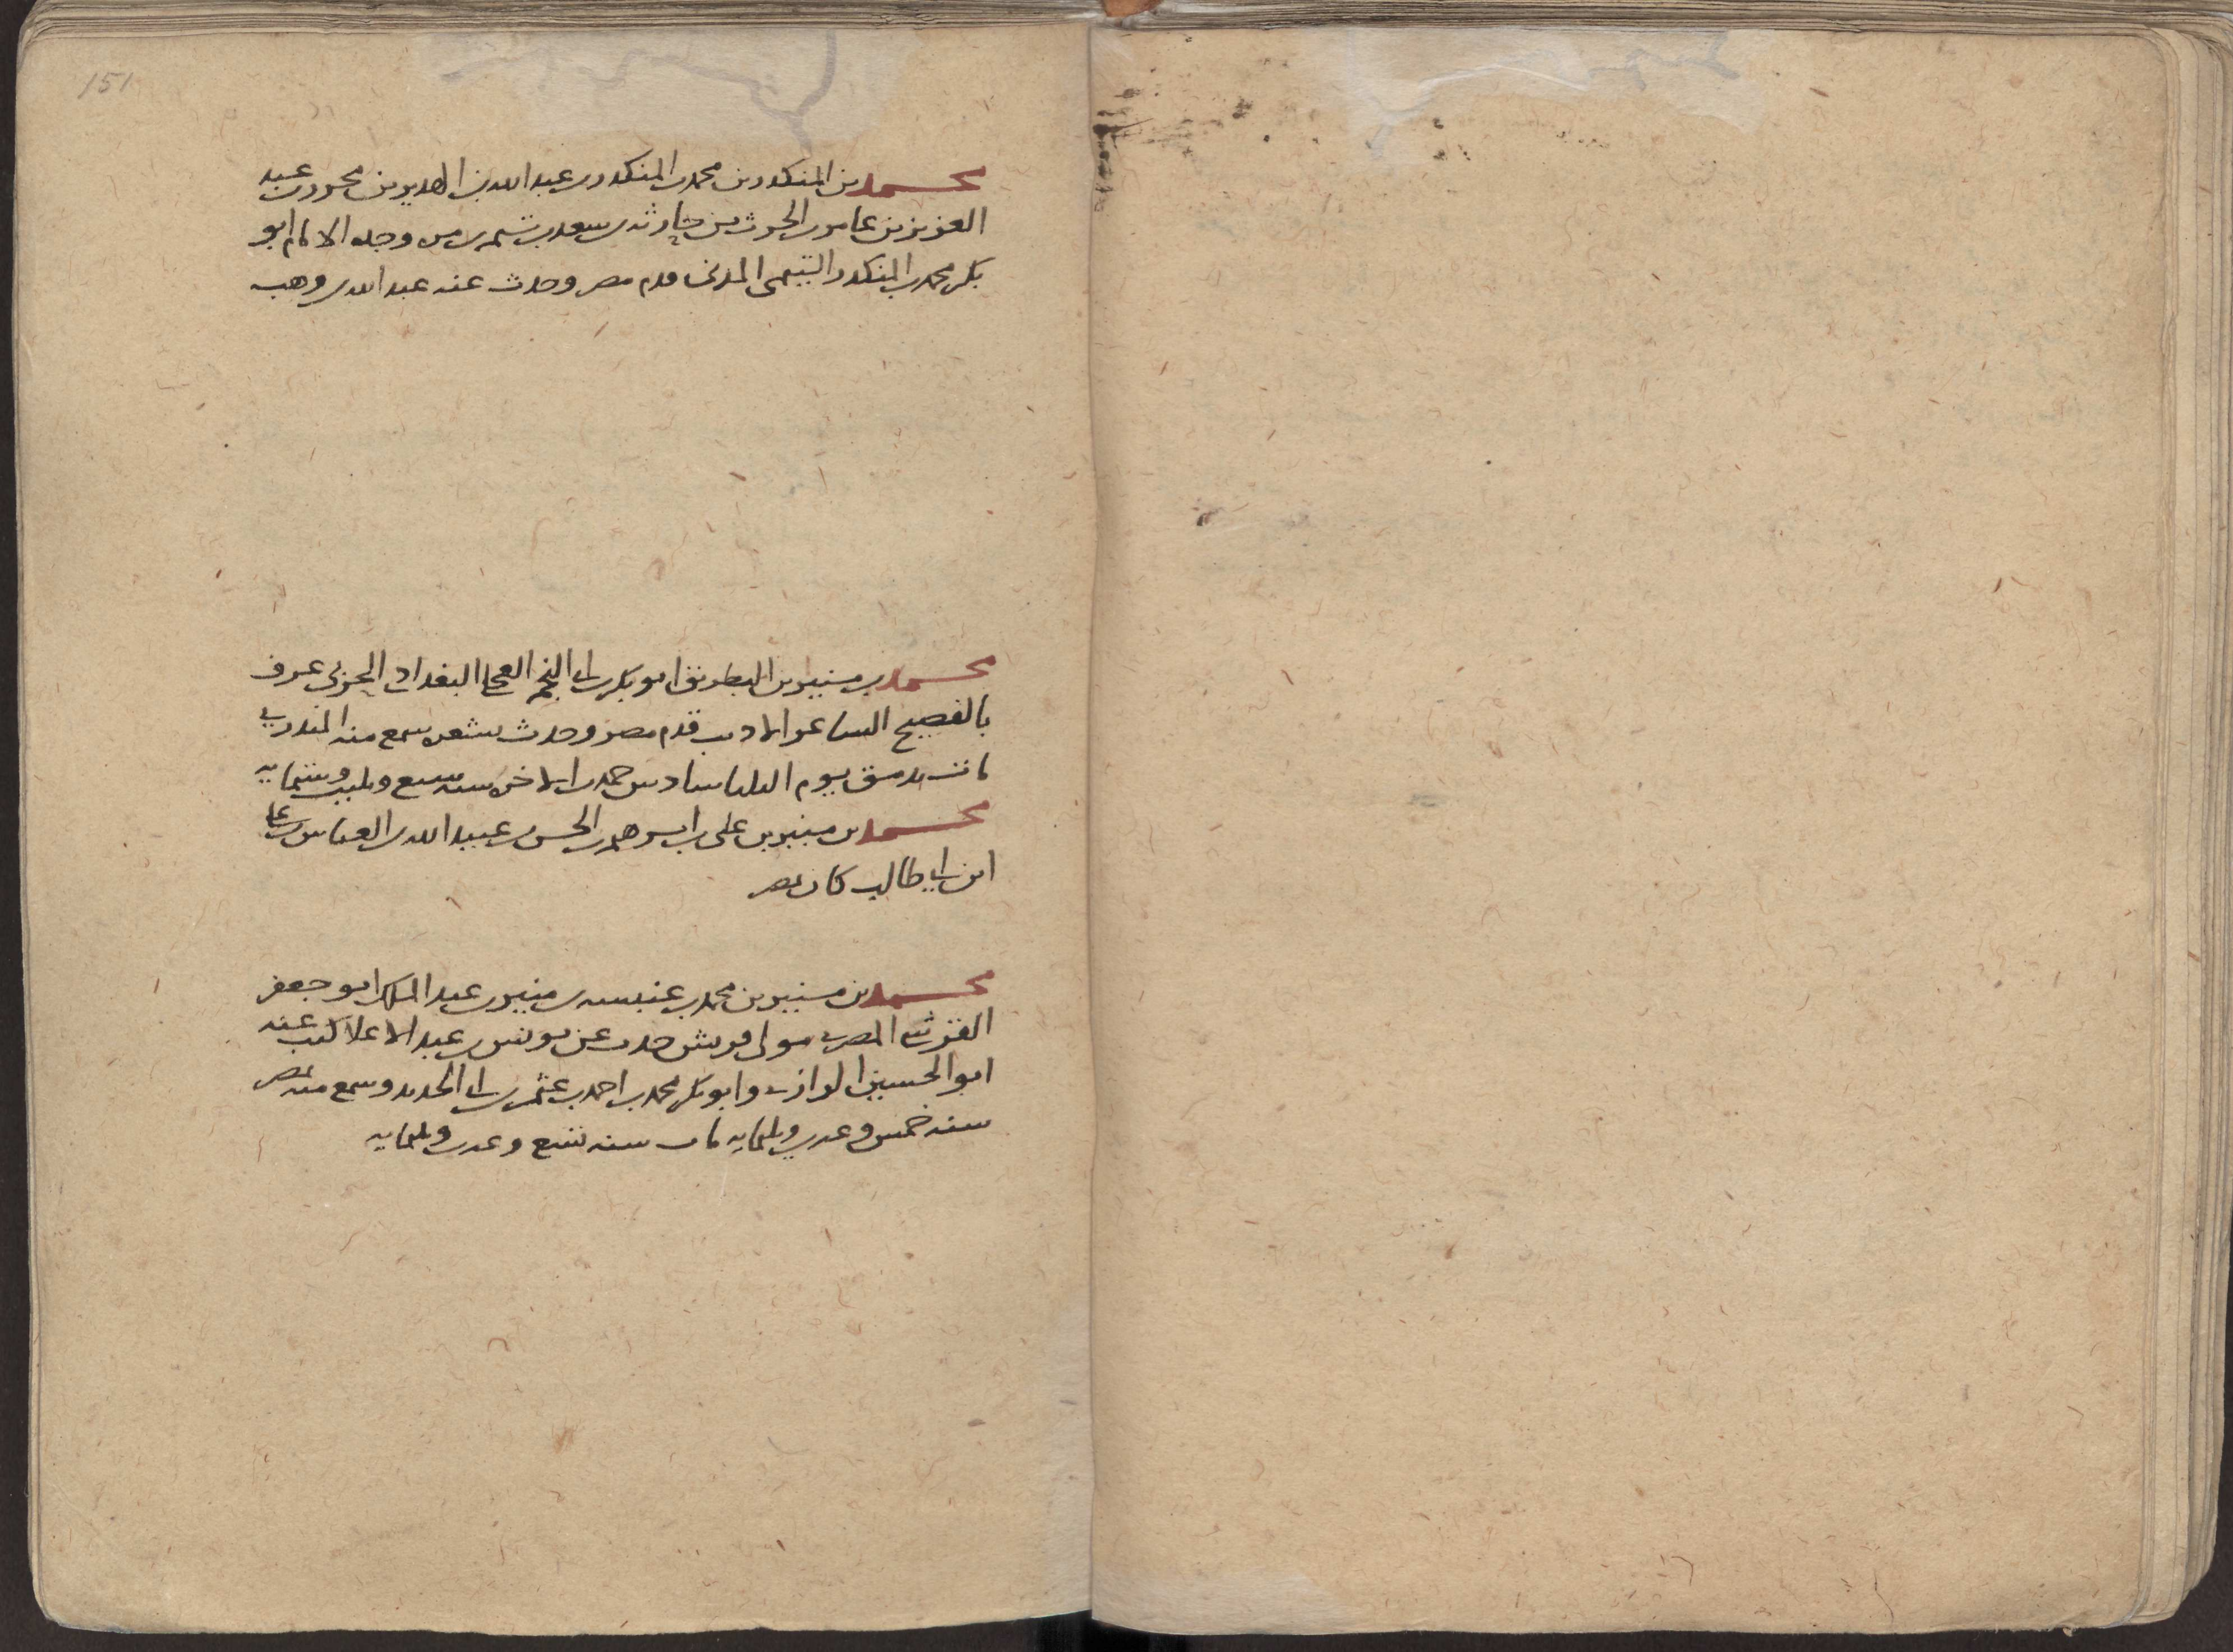 151
محمد بن المنكدر بن محمد بن المنكدر بن عبد الله بن الهدير بن محرز بن عبد
العزيز بن عامر بن الحرث بن حارثة بن سعد بن تيم بن مره وجده الامام ابو
بكر محمد بن المنكدر التيمى المدنى قدم مصر وحدث عنه عبد الله بن وهب
محمد بن منير بن البطريق ابو بكر بن ابى النجم البغدادى الجزرى عرف
بالفصيح الشاعر الاديب قدم مصر وحدث بشعره سمع منه المنذرى
مات بدمشق يوم الثلثا سادس جمدى الاخره سنه سبع وثلثين وستمايه
محمد بن منير بن على بن ابرهيم بن الحسن بن عبيد الله بن العباس بن على
ابن ابى طالب كان بمصر
محمد بن منير بن محمد بن عنبسه بن منير بن عبد الملك ابو جعفر
القرشى المصرى مولى قريش حدث عن يونس بن عبد الاعلا كتب عنه
ابو الحسين الرازى وابو بكر محمد بن احمد بن عثمن بن ابى الحديد وسمع منه بمصر
سنه خمس وعشرين وثلثمايه مات سنه تسع وعشرين وثلثمايه